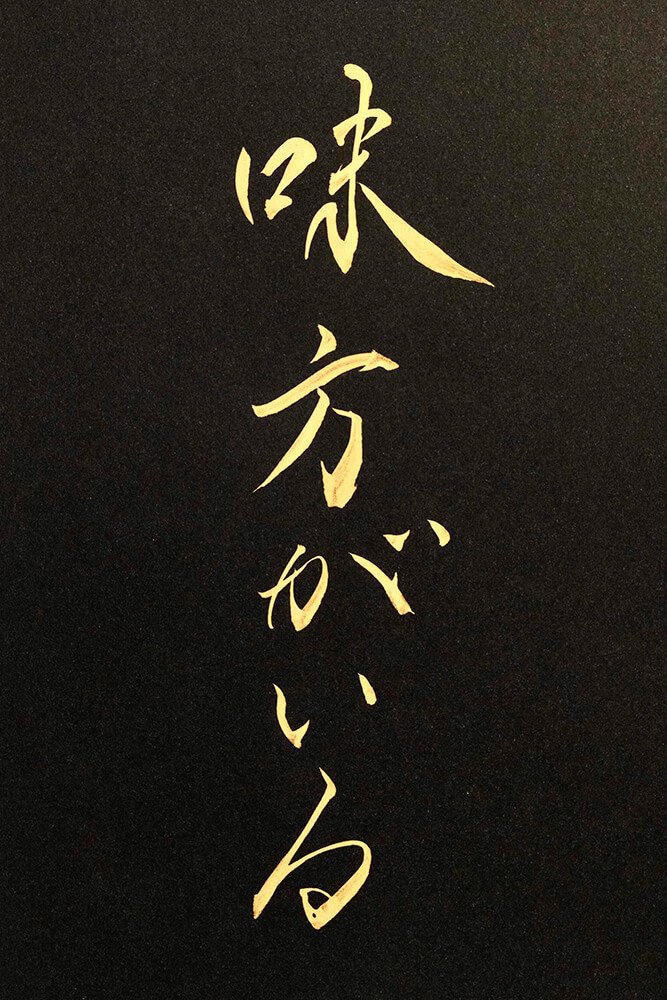 味方がいる